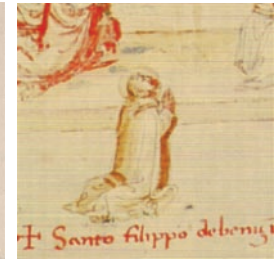 ✝ Santo filippo debeniz